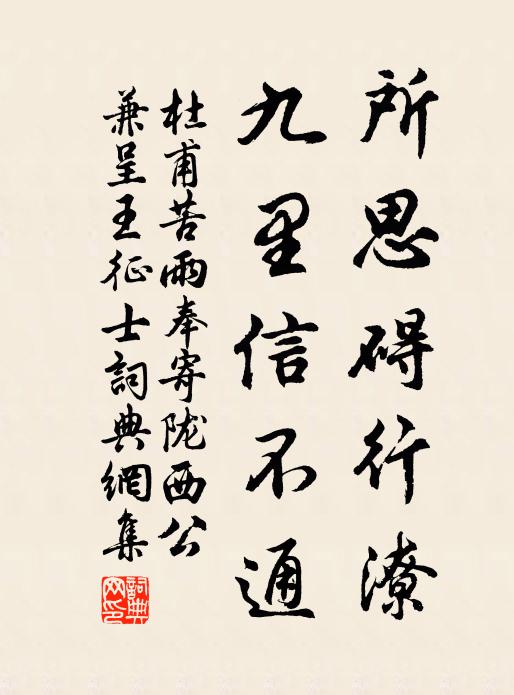 所思碍行潦
九里信不通
杜甫苦雨奉寄陇西公
兼呈王征士詞典網集
詞典網印